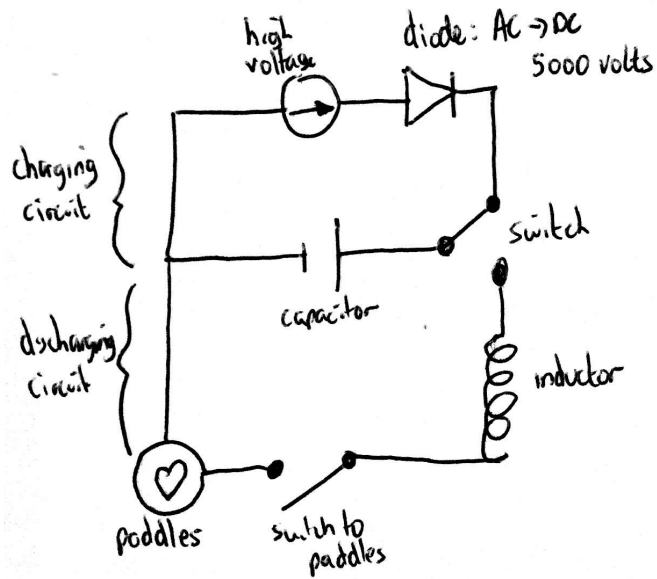 high
voltage
diode: AC → DC
5000 volts
charging
circuit
switch
capacitor
discharging
circuit
inductor
paddles
switch to
paddles